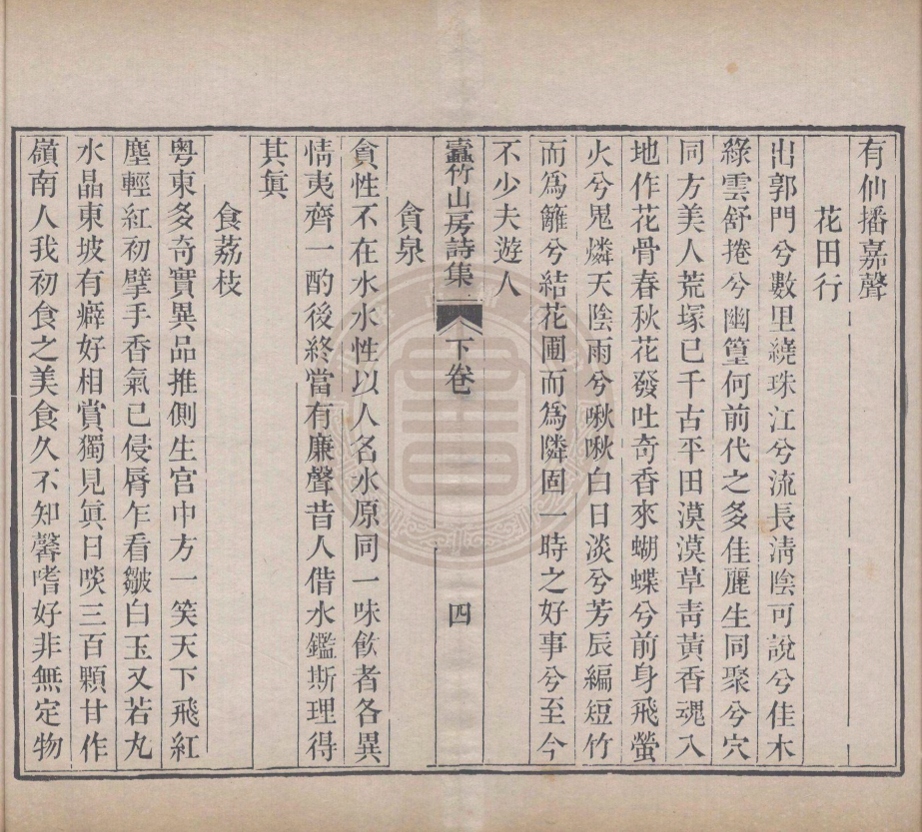 有仙播嘉聲
花田行
出郭門兮數里繞珠江兮流長淸陰可說兮佳木
綠雲舒捲兮幽篁何前代之多佳麗生同聚兮穴
同方美人荒塚已千古平田漠漠草靑黃香魂入
地作花骨春秋花發吐奇香來蝴蝶兮前身飛螢
火兮鬼燐天陰雨兮啾啾白日淡兮芳辰編短竹
而爲籬兮結花圃而爲隣固一時之好事兮至今
不少夫遊人
蠹竹山房詩集 下卷 四
貪泉
貪性不在水水性以人名水原同一味飮者各異
情夷齊一酌後終當有廉聲昔人借水鑑斯理得
其眞
食荔枝
粤東多奇實異品推側生宫中方一笑天下飛紅
塵輕紅初擘手香氣已侵脣乍看皺白玉又若丸
水晶東坡有癖好相賞獨見眞日啖三百顆甘作
嶺南人我初食之美食久不知馨嗜好非無定物